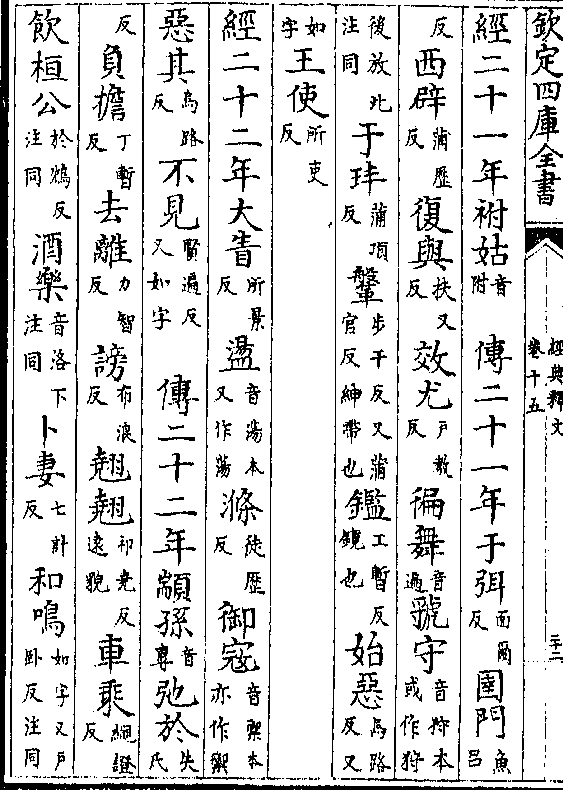 欽定四庫全書 經典釋文 卷十五
經二十一年祔姑音附 傳二十一年于弭面爾反 圉門魚呂
反西辟蒲歷反 復與扶又反 效尤戶教反 徧舞音遍 虢守音狩本或作狩
後放此注同 于玤蒲項反 鞶步干反又蒲官反紳帶也 鑑工暫反鏡也 始惡烏路反又
如字 王使所吏反
經二十二年大眚所景反 盪音蕩本又作蕩 滌徒歷反 御寇音禦本亦作禦
惡其烏路反 不見賢遍反又如字 傳二十二年顓孫音專 弛於失氏
反負擔丁暫反 去離力智反 謗布浪反 翹翹祁堯反遠貌 車乘繩證反
飲桓公於鴆反注同 酒樂音洛下注同 卜妻七計反 和鳴如字又戶卧反注同